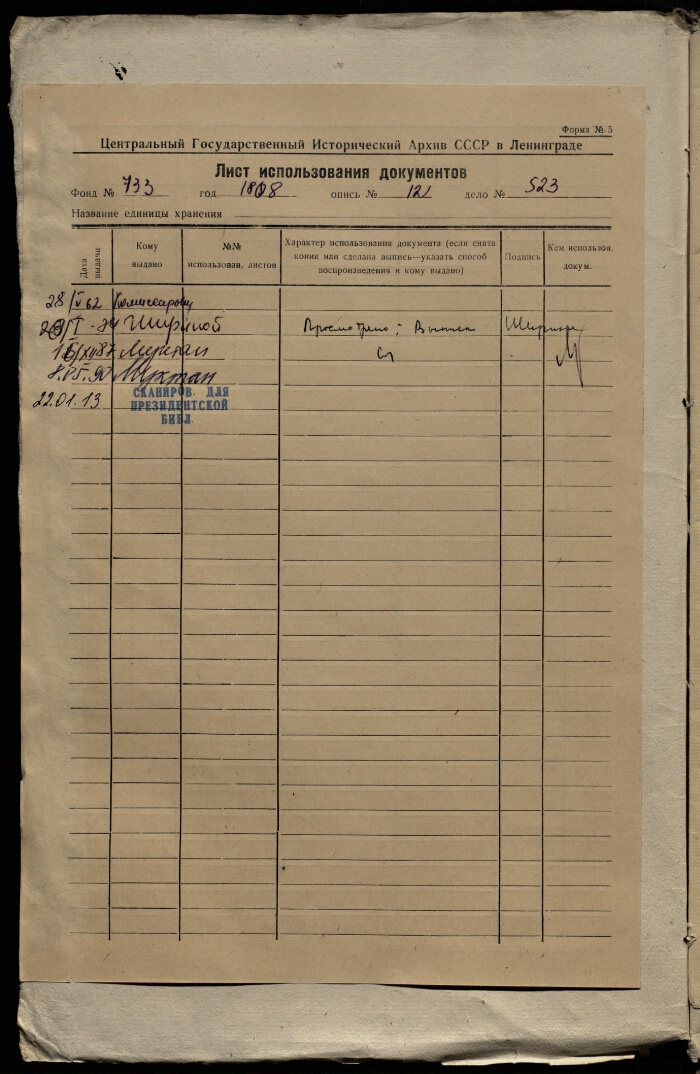 Форма № 5
Центральный Государственный Исторический Архив СССР в Ленинграде
Лист использования документов
Фонд № 733 год 1808 опись № 121 дело № 523
Название единицы хранения
Дата выдачи
Кому выдано
№№ использован. листов
Характер использования документа (если снята копия или сделана выпись—указать способ воспроизведения и кому выдано)
Подпись
Кем использов. докум.
28/V 62 Комиссарову
Шириной Просмотрено;
8.05.90
22.01.13
СКАНИРОВ. ДЛЯ
ПРЕЗИДЕНТСКОЙ
БИБЛ.